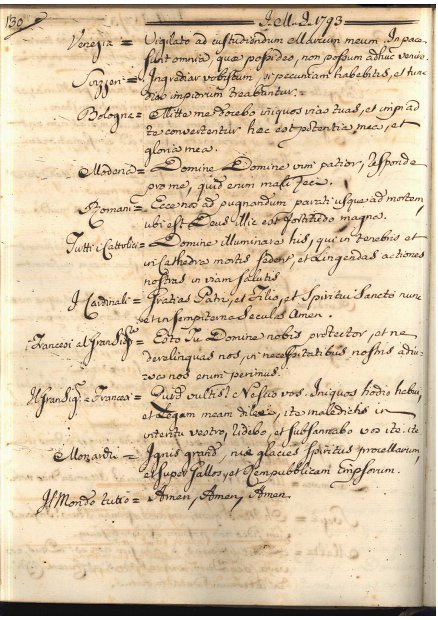 130
A. M. D. 1793
Venezia = Vigilate ad custudiendum Marcum meum. In pace
sunt omnia, quæ possideo, non possum adhuc venire.
Svizzeri = Ingrediar vobiscum, si pecuniam habebitis, et tunc
impiorum
Bologna = Mitte me docebo iniquos vias tuas, et impii ad
te convertentur hæc est potentia mea, et
gloria mea.
Modena = Domine Domine vim patior, responde
pro me, quid enim mali feci.
Romani = Ecce nos ad pugnandum parati usque ad mortem,
ubi est Deus illic est fortitudo magna.
Tutti i Cattolici = Domine illuminare his, qui in tenebris et
in Cathedra mortis sedent, et dirigendas actiones
nostras in viam salutis
I Cardinali = Gratias Patri, et Filio, et Spiritui Sancto nunc
et in sempiterna secula Amen.
Francesi al Gran Sig.e = Esto Tu Domine nobis protector, et ne
derelinquas nos, in necessitatibus nostris adiu-
nos enim perimus.
Il Gran Sig.e a Francesi = Quid vultis? Nescio vos. Iniquos hodio habui,
et Legem meam dilexi, ite maledictis in
interitu vestro, ridebo, et subsannabo vos ite. ite
= Ignis grand, nix glacies Spiritus procellarum,
et super Gallos, et Rempubblicam Impiorum.
Il Mondo tutto = Amen, Amen, Amen.